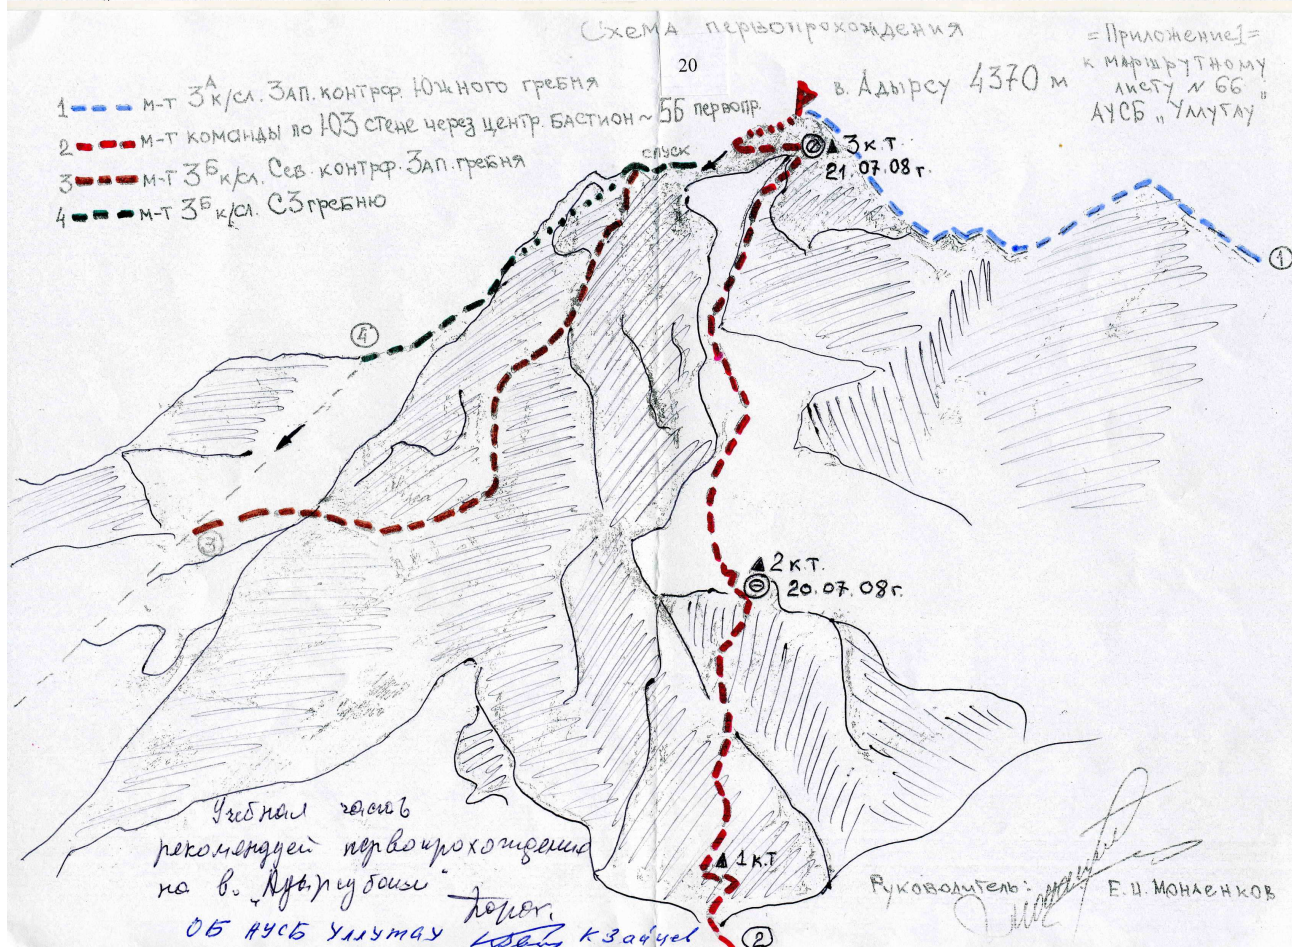 Схема первопрохождения
20
=Приложение1=
к маршрутному
листу N 66
АУСБ „Уллутау"
1 м-т 3А к/сл. Зап. контрф. Южного гребня
2 м-т команды по ЮЗ стене через центр. бастион ~ 5Б первопр.
3 м-т 3Б к/сл. Сев. контрф. Зап. гребня
4 м-т 3Б к/сл. СЗ гребню
в. Адырсу 4370 м
спуск
3 к.т.
21.07.08г.
1
4
3
2 к.т.
20.07.08г.
1 к.т
2
Учебная часть
рекомендует первопрохождение
на в. „Адырсубаши"
ОБ АУСБ Уллутау К Зайцев
Руководитель: Е.И. Монаенков